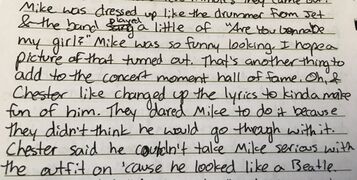 Mike was dressed up like the drummer from Jet
& the band played a little of "Are You Gonna be
my girl?" Mike was so funny looking. I hope a
picture of that turned out. That's another thing to
add to the concert moment hall of fame. Oh, &
Chester like changed up the lyrics to kinda make
fun of him. They dared Mike to do it because
they didn't think he would go through with it.
Chester said he couldn't take Mike serious with
the outfit on 'cause he looked like a Beatle.